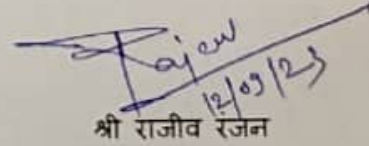 Rajeev
12/09/23
श्री राजीव रंजन